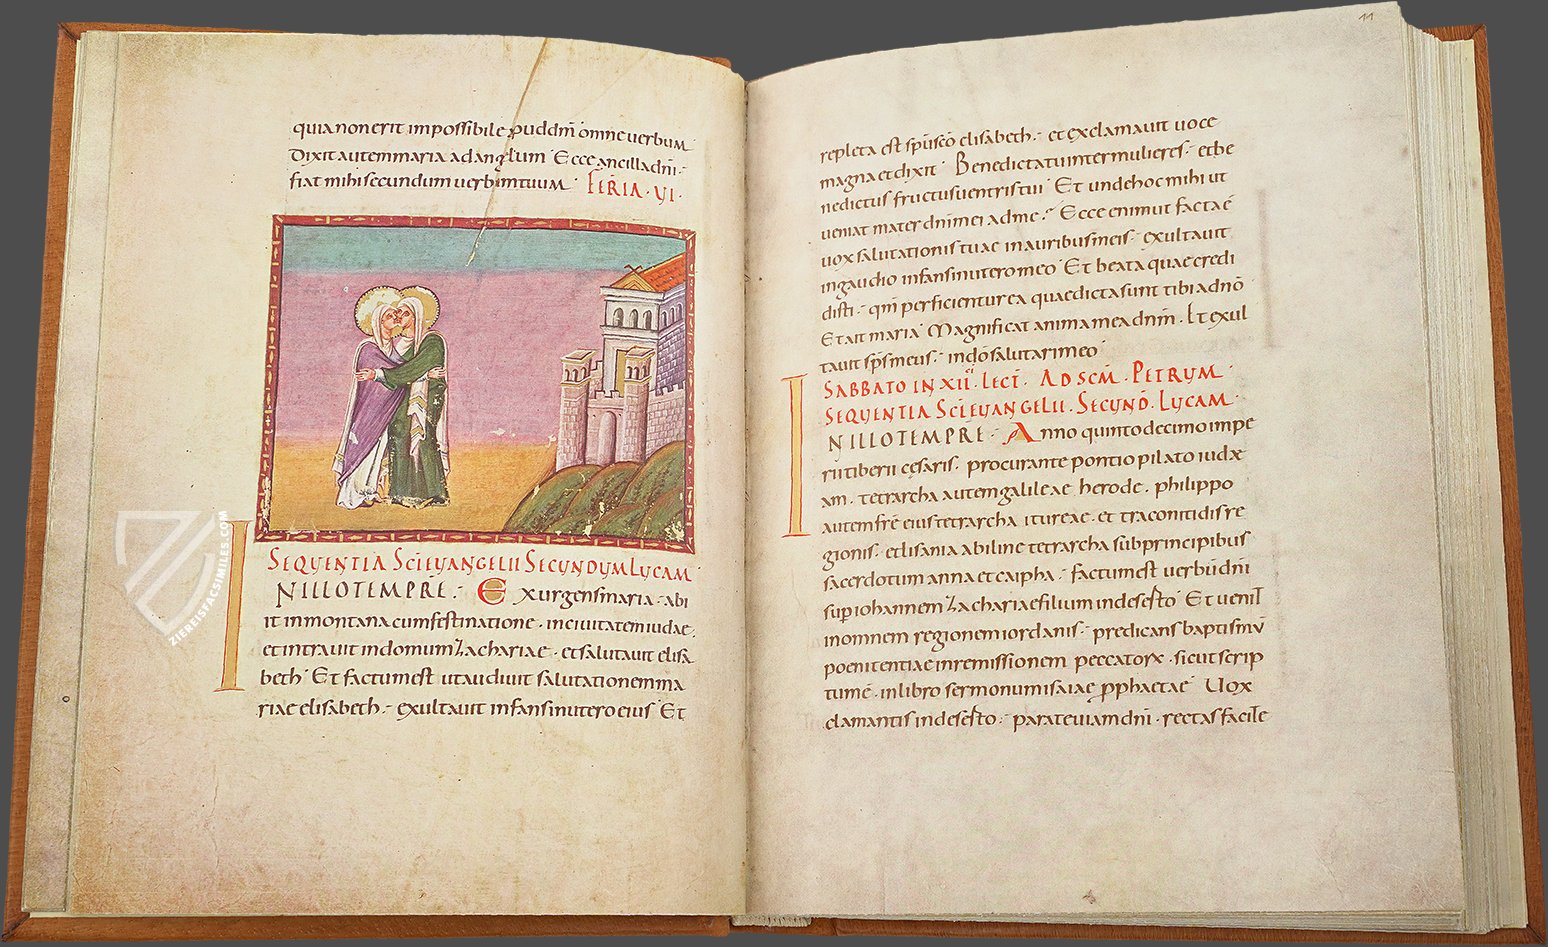 quia non erit impossibile apud dm̄ omne verbum
Dixit autem maria ad angelum Ecce ancilla dn̄i·
fiat mihi secundum verbum tuum FERIA·VI·
SEQUENTIA SC̄I EVANGELII SECUNDUM LUCAM
IN ILLO TEMPRE· Exurgens maria· abi
it in montana cum festinatione· in civitatem iudae·
et intravit in domum Zachariae· et salutavit elisa
beth· Et factum est ut audivit salutationem ma
riae elisabeth· exultavit infans in utero eius· Et
ZIEREISFACSIMILES.COM
11
repleta est sp̄u sc̄o elisabeth· et exclamavit voce
magna et dixit· Benedicta tu inter mulieres· et be
nedictus fructus ventris tui· Et unde hoc mihi ut
veniat mater dn̄i mei ad me· Ecce enim ut facta ē
vox salutationis tuae in auribus meis· exultavit
in gaudio infans in utero meo· Et beata quae credi
disti· qm̄ perficientur ea quae dicta sunt tibi a dn̄o
Et ait maria· Magnificat anima mea dn̄m· Et exul
tavit sp̄s meus· in dō salutari meo·
SABBATO IN XII LECT̄· AD SC̄M· PETRUM·
SEQUENTIA SC̄I EVANGELII· SECUND̄· LUCAM·
IN ILLO TEMPRE· Anno quinto decimo impe
rii tiberii cęsaris· procurante pontio pilato iudæ
am· tetrarcha autem galileae herode· philippo
autem fr̄e eius tetrarcha itureae· et traconitidis re
gionis· et lisania abiline tetrarcha sub principibus
sacerdotum anna et caipha· factum est verbū dn̄i
sup̄ iohannem Zachariae filium in deserto· Et venit
in omnem regionem iordanis· predicans baptismū
poenitentiae in remissionem peccatorꝝ· sicut scrip
tum ē· in libro sermonum isaiae pphaetae· Vox
clamantis in deserto· parate viam dn̄i· rectas facite